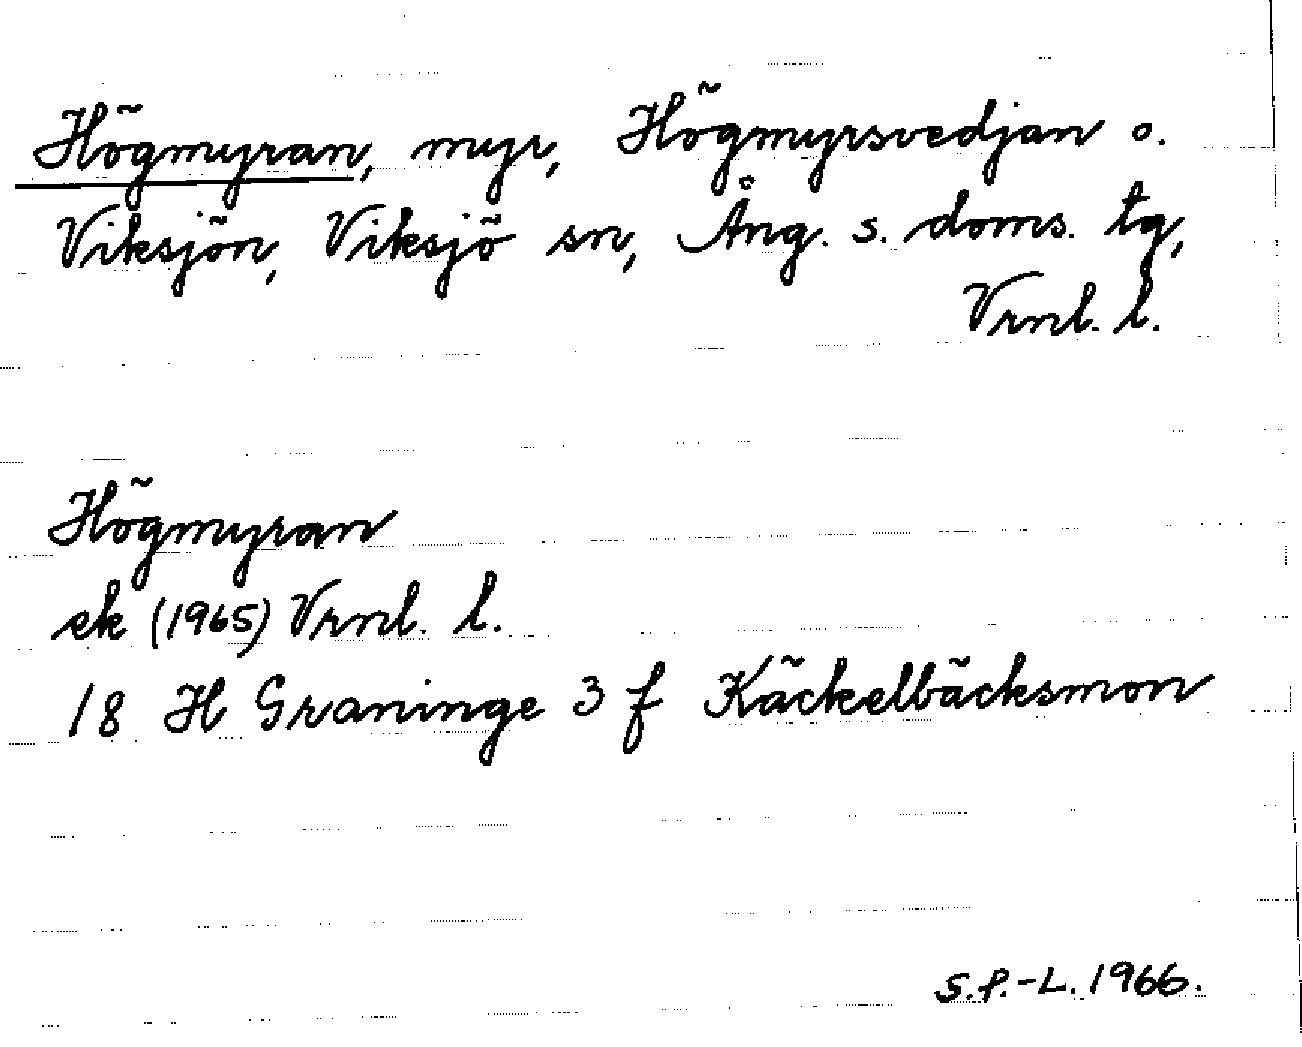 Högmyran, myr, Högmyrsvedjan o.
Viksjön, Viksjö sn, Ång. s. doms. tg,
Vrnl. l.
Högmyran
ek (1965) Vrnl. l.
18 H Graninge 3 f Käckelbäcksmon
S.P.-L. 1966.